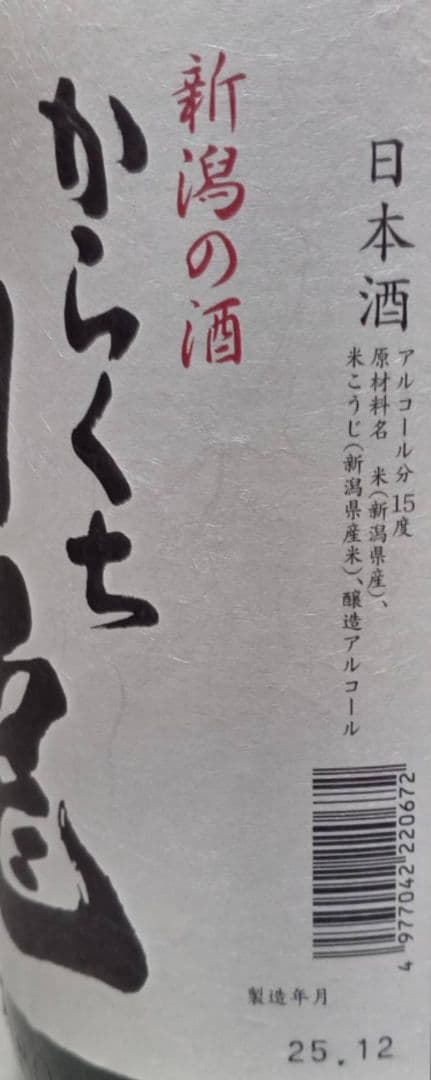 日本酒
アルコール分15度
原材料名 米(新潟県産)、
米こうじ(新潟県産米)、醸造アルコール
新潟の酒
からくち
4 977042 220672
製造年月
25.12